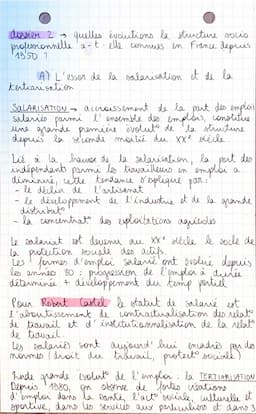 dossier 2 → quelles évolutions la structure socio
professionnelle a-t-elle connues en France depuis
1950 ?
A) L'essor de la salarisation et de la
tertiarisation
SALARISATION → accroissement de la part des emplois
salariés parmi l'ensemble des emplois, constitue
une grande première évolut° de la structure
depuis la seconde moitié du XXe siècle.
Lié à la hausse de la salarisation, la part des
indépendants parmi les travailleurs en emploi a
diminué, cette tendance s'explique par :
- le déclin de l'artisanat
- le développement de l'industrie et de la grande
distribut°
- la concentrat° des exploitations agricoles
Le salariat est devenu au XXe siècle le socle de
la protection sociale des actifs.
Les formes d'emploi salarié ont évolué depuis
les années 80 : progression de l'emploi à durée
déterminée + développement du temps partiel
Pour Robert Castel le statut de salarié est
l'aboutissement de contractualisation des relat°
de travail et d'institutionnalisation de la relat°
de travail.
Les salariés sont aujourd'hui encadrés par des
normes (droit du travail, protect° sociale)
grande évolut° de l'emploi : la TERTIARISATION
Depuis 1980, on observe de fortes créations
d'emploi dans la santé, l'act° sociale, culturelle et
sportive, dans les services aux particuliers et dans